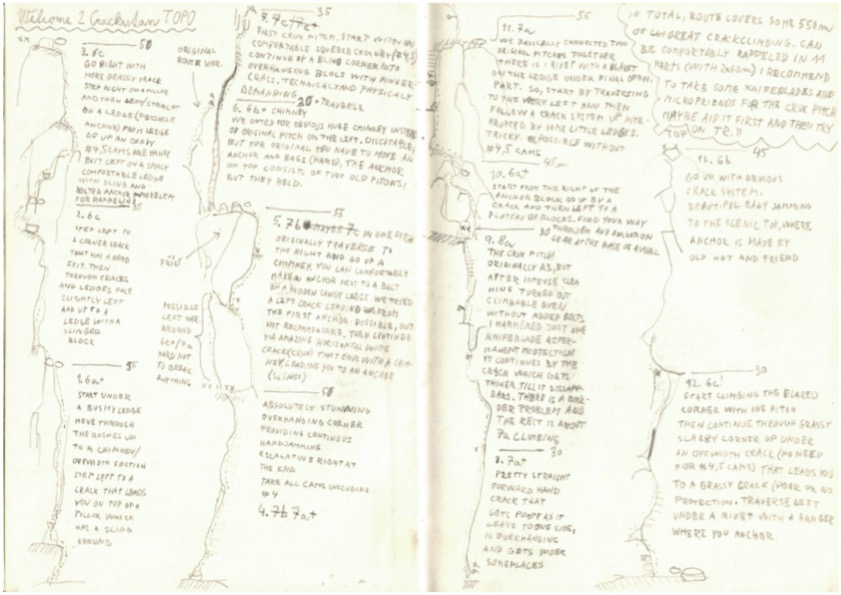 Welcome 2 Crackistan TOPO
50
3. 6c
GO RIGHT WITH
MORE GRASSY CRACK
STEP RIGHT ON A PILLAR
AND THEN STRAIGHT
ON A LEDGE (POSSIBLE
ANCHOR) FROM LEDGE
GO UP AN
#4,5 CAMS ARE HANDY
EXIT LEFT ON A GRASSY
COMFORTABLE LEDGE
WITH SLING AND
BOLTED ANCHOR
35
2. 6c
STEP LEFT TO
A CORNER CRACK
THAT HAS A HARD
EXIT. THEN
THROUGH CRACKS
AND LEDGES FACE
SLIGHTLY LEFT
AND UP TO A
LEDGE WITH A
SLINGED
BLOCK
55
1. 6a+
START UNDER
A BUSHY LEDGE
MOVE THROUGH
THE BUSHES UP
TO A CHIMNEY/
OFFWIDTH SECTION
STEP LEFT TO A
CRACK THAT LEADS
YOU ON TOP OF A
PILLAR WHICH
HAS A SLING
AROUND
ORIGINAL
ROUTE VAR.
POSSIBLE
LEFT VAR.
AROUND
6c+/7a
HARD NOT
TO BREAK
ANYTHING
35
7. 7c/7c+
FIRST CRUX PITCH, START WITH AN
COMFORTABLE SQUEEZE CHIMNEY (#4,5)
CONTINUE BY A BLIND CORNER INTO
OVERHANGING BLOCS WITH FINGER
CRACS, TECHNICALY AND PHYSICALY
DEMANDING
20 + TRAVERSE
6. 6b+ CHIMNEY
WE OPTED FOR OBVIOUS HUGE CHIMNEY INSTEAD
OF ORIGINAL PITCH ON THE LEFT. DISCUTABLE,
BUT FOR ORIGINAL YOU HAVE TO MOVE AN
ANCHOR AND BAGS (HARD), THE ANCHOR
ON TOP CONSISTS OF TWO OLD PITONS,
BUT THEY HOLD.
55
5. 7b MAYBE 7c IN ONE PITCH
ORIGINALLY TRAVERSE TO
THE RIGHT AND GO UP A
CHIMNEY. YOU CAN COMFORTABLY
MAKE AN ANCHOR NEXT TO A BOLT
ON A HIDDEN SANDY LEDGE. WE TRIED
A LEFT CRACK LEADING FROM
THE FIRST ANCHOR. POSSIBLE, BUT
NOT RECOMMENDABLE. THEN CONTINUE
VIA AMAZING HORIZONTAL WIDE
CRACK (CRUX) THAT ENDS WITH A CHIM-
NEY, LEADING YOU TO AN ANCHOR
(SLINGS)
50
ABSOLUTELY STUNNING
OVERHANGING CORNER
PROVIDING CONTINOUS
HANDJAMMING
ESCALATING RIGHT AT
THE END
TAKE ALL CAMS INCLUDING
#4
4. 7b 7a+
55
11. 7a
WE BASICALLY CONNECTED TWO
ORIGINAL PITCHES TOGETHER
THERE IS 1 RIVET WITH A PLAKET
ON THE LEDGE UNDER FINAL
PART. SO, START BY TRAVERSING
TO THE VERY LEFT AND THEN
FOLLOW A CRACK SYSTEM UP INTE-
RRUPTED BY SOME LITTLE LEDGES.
TRICKY. POSSIBLE WITHOUT
#4,5 CAMS
45m
10. 6a+
START FROM THE RIGHT OF THE
ANCHOR BLOCK GO UP BY A
CRACK AND THEN LEFT TO A
PLATEAU OF BLOCKS. FIND YOUR WAY
THROUGH AND ANCHOR ON
GEAR AT THE BASE OF A WALL
30
9. 8a
THE CRUX PITCH
ORIGINALLY A3, BUT
AFTER INTENSE CLEA
NING TURNED OUT
CLIMBABLE EVEN
WITHOUT ADDED BOLTS.
I HAMMERED JUST ONE
KNIFEBLADE AS PER-
MANENT PROTECTION
IT CONTINUES BY THE
CRACK WHICH GETS
THINER TILL IT DISSAPP-
EARS. THERE IS A BOUL-
DER PROBLEM AND
THE REST IS ABOUT
7a CLIMBING
30
8. 7a+
PRETTY STRAIGHT
FORWARD HAND
CRACK THAT
GETS PUMPY AS IT
LEANS TO ONE SIDE,
IS OVERHANGING
AND GETS WIDER
SOMEPLACES
IN TOTAL, ROUTE COVERS SOME 550m
OF GREAT CRACKCLIMBING. CAN
BE COMFORTABLY RAPPELED IN 11
PARTS (WITH 2x60m) I RECOMMEND
TO TAKE SOME KNIFEBLADES AND
MICROFRIENDS FOR THE CRUX PITCH
MAYBE AID IT FIRST AND THEN TRY
ON TR. !!
TOP
45
13. 6b
GO UP WITH OBVIOUS
CRACK SYSTEM.
BEAUTIFUL EASY JAMMING
TO THE SCENIC TOP, WHERE
ANCHOR IS MADE BY
OLD NUT AND FRIEND
30
12. 6c!
START CLIMBING THE FLARED
CORNER WITH ONE PITON
THEN CONTINUE THROUGH GRASSY
SLABBY CORNER UP UNDER
AN OFFWIDTH CRACK (NO NEED
FOR #4,5 CAMS) THAT LEADS YOU
TO A GRASSY CRACK (POOR OR NO
PROTECTION. TRAVERSE LEFT
UNDER A RIVET WITH A HANGER
WHERE YOU ANCHOR